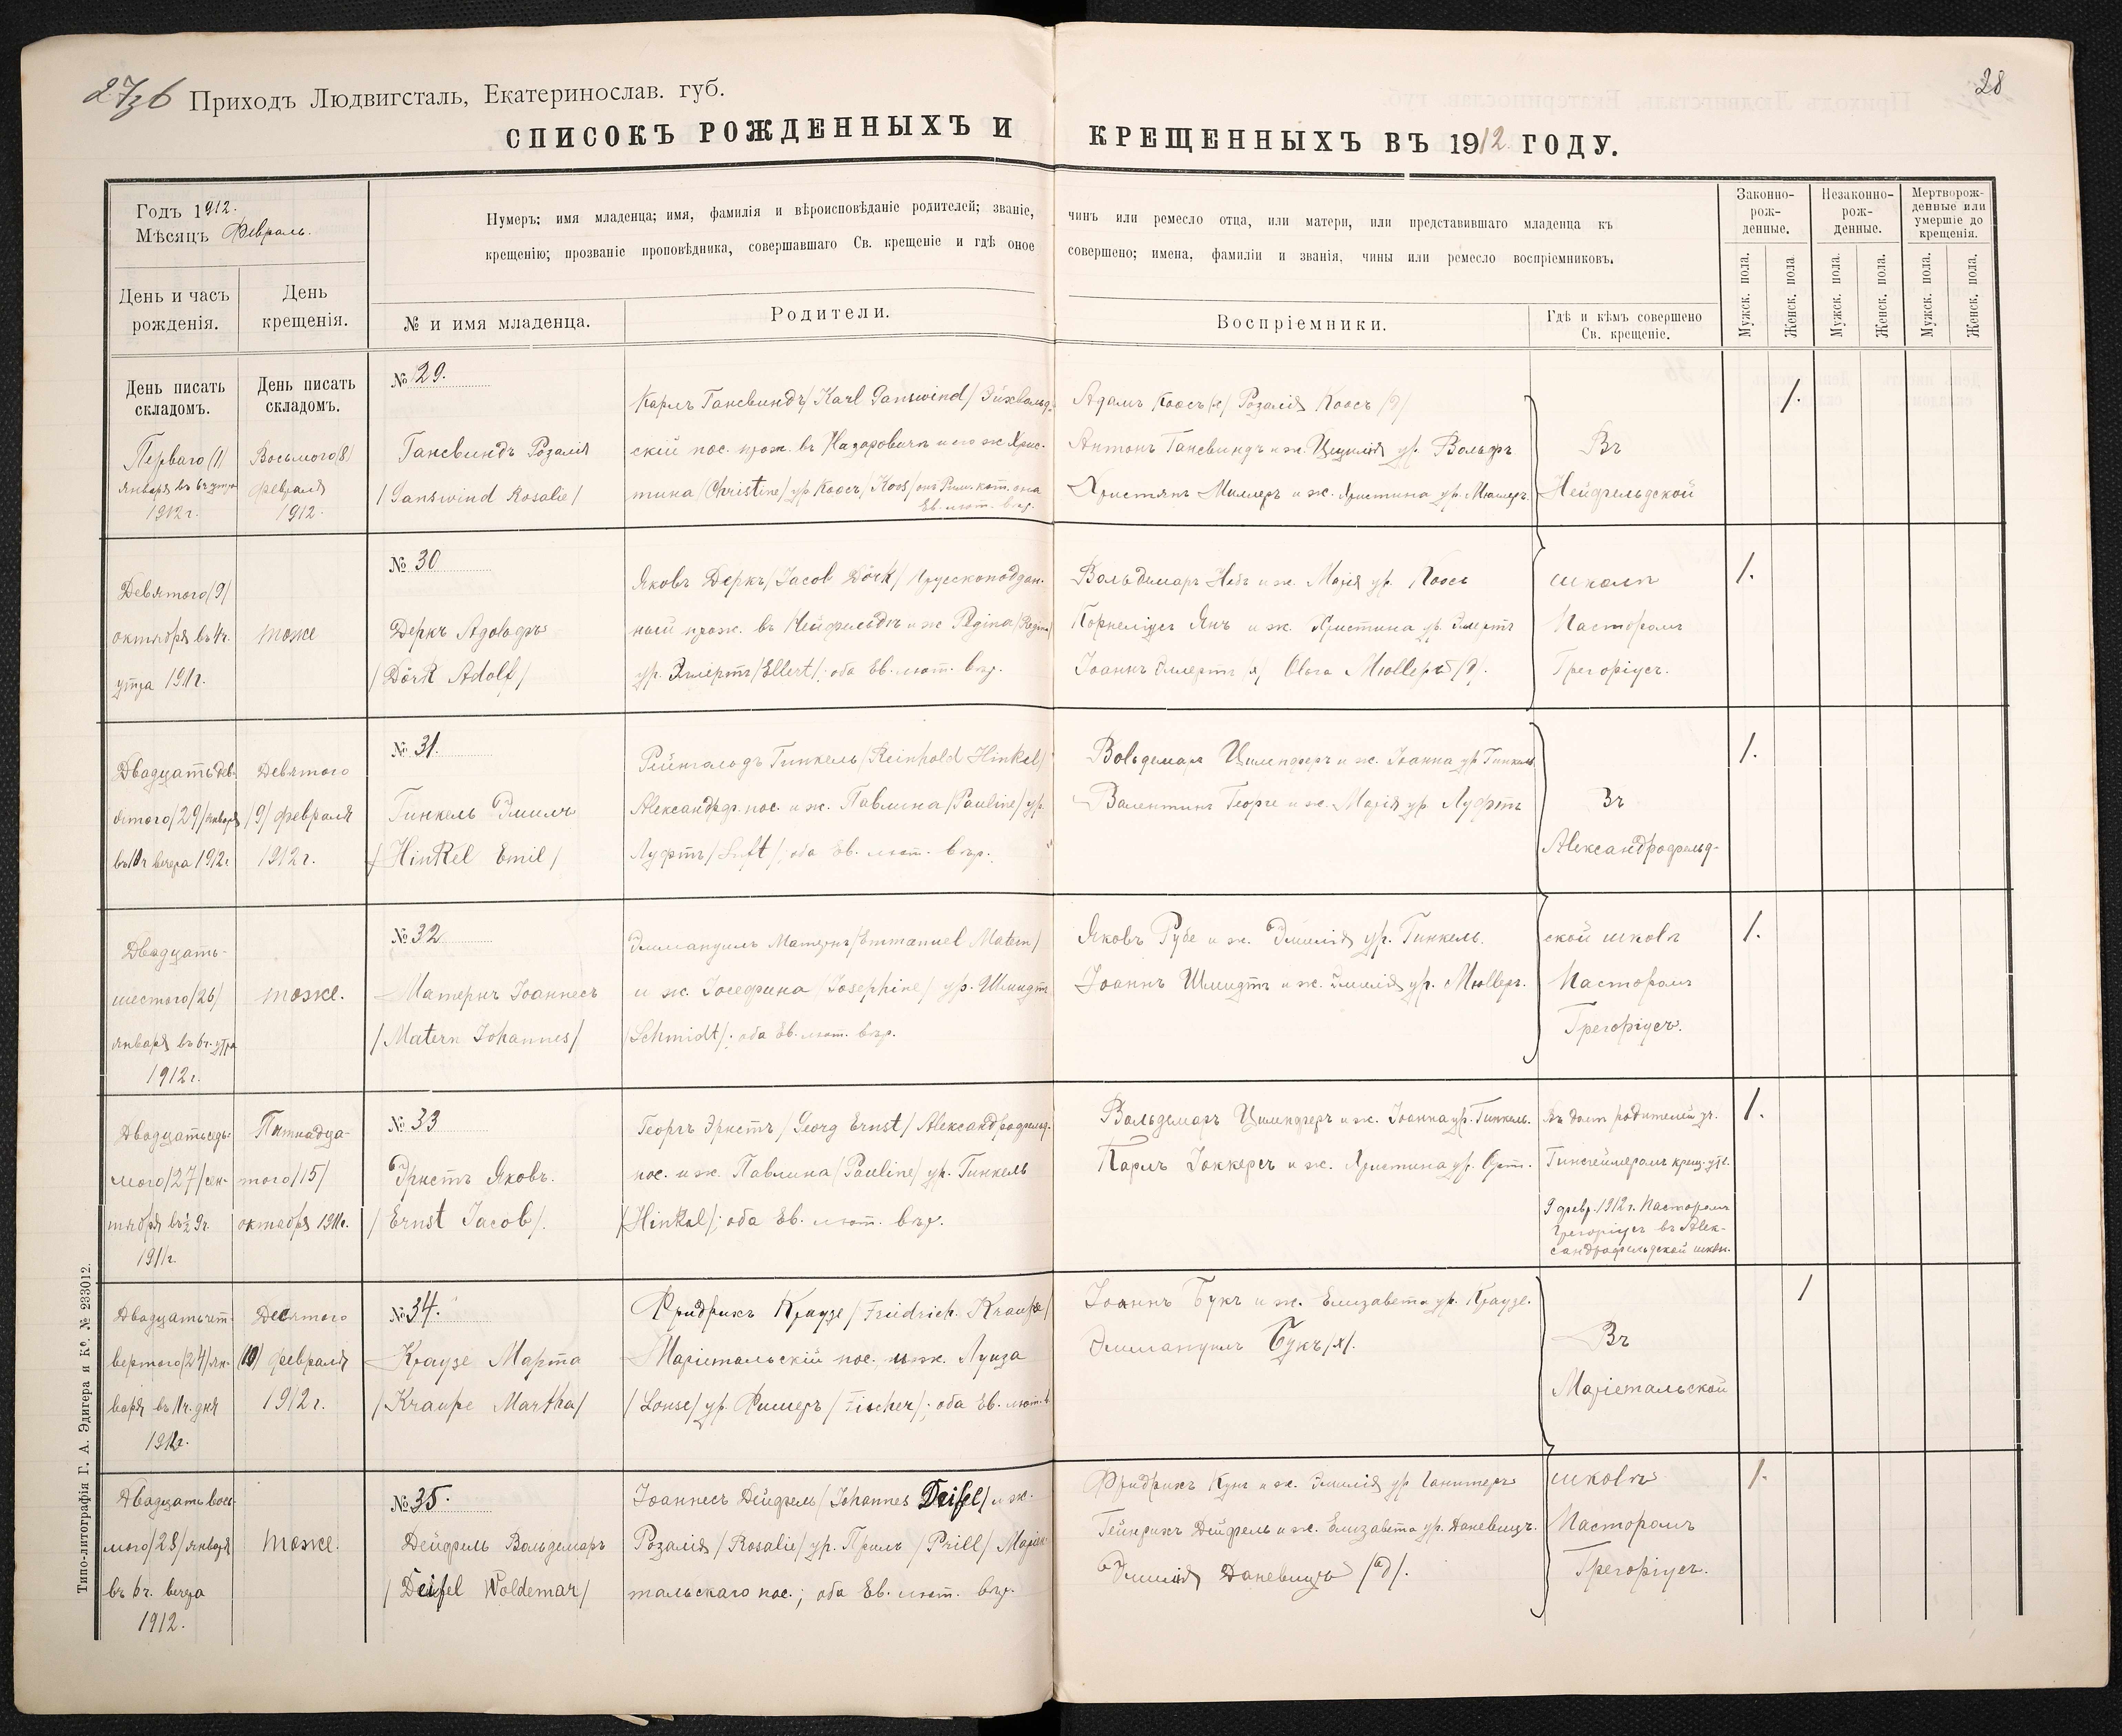 27зб Приходъ Людвигсталь, Екатеринослав. губ.
28
СПИСОКЪ РОЖДЕННЫХЪ И КРЕЩЕННЫХЪ ВЪ 1912 ГОДУ.
Годъ 1912.
Мѣсяцъ Февраль.
Нумеръ; имя младенца; имя, фамилія и вѣроисповѣданіе родителей; званіе, чинъ или ремесло отца, или матери, или представившаго младенца къ
крещенію; прозваніе проповѣдника, совершавшаго Св. крещеніе и гдѣ оное совершено; имена, фамиліи и званія, чины или ремесло воспріемниковъ.
Законно-рож-денные.
Незаконно-рож-денные.
Мертворож-денные или умершіе до крещенія.
День и часъ рожденія.
День крещенія.
№ и имя младенца.
Родители.
Воспріемники.
Гдѣ и кѣмъ совершено Св. крещеніе.
Мужск. пола.
Женск. пола
Мужск. пола.
Женск. пола.
Мужск. пола.
Женск. пола.
День писать складомъ.
День писать складомъ.
Перваго (1)
января въ 6ч утра
1912 г.
Восьмого (8)
февраля
1912.
№ 29.
Гансвиндъ Розалія
/Ganswind Rosalie/
Карлъ Гансвиндъ /Karl Ganswind/ Эйхвальд-
скій пос. прож. въ Назаровичъ и его ж. Хрис-
тина /Christine/ ур. Коосъ /Koos/ онъ Рим. кат. она
Ев. лют. вѣр.
Адамъ Коосъ (х) Розалія Коосъ (д)
Антонъ Гансвиндъ и ж. Цецилія ур. Вольфъ
Христянъ Миллеръ и ж. Христина ур.
Въ
Нейфельдской
1.
Девятого (9)
октября въ 4ч.
утра 1911 г.
тоже
№ 30
Деркъ Адольфъ
/Dörk Adolf/
Яковъ Деркъ /Jacob Dörk/ Прусскоподдан-
ный прож. въ Нейфельдѣ и ж. Regina /Regina/
ур. Эллертъ /Ellert/; оба Ев. лют. вѣр.
Вольдемаръ и ж. Марія ур. Коосъ
Корнеліусъ Янъ и ж. Христина ур. Эллертъ
Іоаннъ Эллертъ (х) Ольга Мюллеръ (д).
школѣ
Пасторомъ
Грегоріусъ.
1.
Двадцать дев-
ятого /29/ января
въ 11ч вечера 1912 г.
Девятого
/9/ февраля
1912 г.
№ 31.
Гинкель Эмиль
/Hinkel Emil/
Рейнгольдъ Гинкель /Reinhold Hinkel/
Александрф. пос. и ж. Павлина /Pauline/ ур.
Луфтъ /Luft/; оба Ев. лют. вѣр.
Вольдемаръ Цимпферъ и ж. Іоанна ур Гинкель
Валентинъ Георге и ж. Марія ур. Луфтъ
Въ
Александрфельд-
1.
Двадцать-
шестого /26/
января въ 6ч. утра
1912 г.
тоже.
№ 32
Матернъ Іоаннесъ
/Matern Johannes/
Эммануилъ Матернъ /Emmanuel Matern/
и ж. Іосефина /Josephine/ ур. Шмидтъ
/Schmidt/; оба Ев. лют. вѣр.
Яковъ Рубе и ж. Эмилія ур. Гинкель.
Іоаннъ Шмидтъ и ж. Эмилія ур. Мюллеръ.
ской школѣ
Пасторомъ
Грегоріусъ.
1.
Двадцатьседь-
мого /27/ сен-
тября въ ½ 9 г.
1911 г.
Пятнадца-
того /15/
октября 1911 г.
№ 33
Эрнстъ Яковъ.
/Ernst Jacob/.
Георгъ Эрнстъ /Georg Ernst/ Александрфельд.
пос. и ж. Павлина /Pauline/ ур. Гинкель
/Hinkel/; оба Ев. лют. вѣр.
Вольдемаръ Цимпферъ и ж. Іоанна ур. Гинкель.
Карлъ Іоккерсъ и ж. Христина ур.
въ домѣ родителей уч.
9 февр. 1912 г. Пасторомъ
Грегоріусъ въ Алек-
сандрфельдской школ.
1.
Двадцатьчет-
вертого /24/ ян-
варя въ 11ч. дня
1912г.
Десятого
(10) февраля
1912 г.
№ 34.
Краузе Марта
/Krauße Martha/
Фридрихъ Краузе /Friedrich Krauße/
Маріентальскій пос. и ж. Луиза
/Louse/ ур. Фишеръ /Fischer/; оба Ев. лют. в
Іоаннъ Букъ и ж. Елизавета ур. Краузе.
Эммануилъ Букъ (х).
Въ
Маріентальской
1
Двадцать вось-
мого /28/ января
въ 6ч. вечера
1912.
тоже.
№ 35.
Дейфель Вольдемаръ
/Deifel Woldemar/
Іоаннесъ Дейфель /Johannes Deifel/ и ж.
Розалія /Rosalie/ ур. Приль /Prill/ Маріен-
тальскаго пос.; оба Ев. лют. вѣр.
Фридрихъ Кунъ и ж. Эмилія ур
Гейнрихъ Дейфель и ж. Елизавета ур. Даневицъ.
Эмилія Даневицъ (д).
школѣ
Пасторомъ
Грегоріусъ.
1.
Типо-литографія Г. А. Эдигера и К°. № 233012.